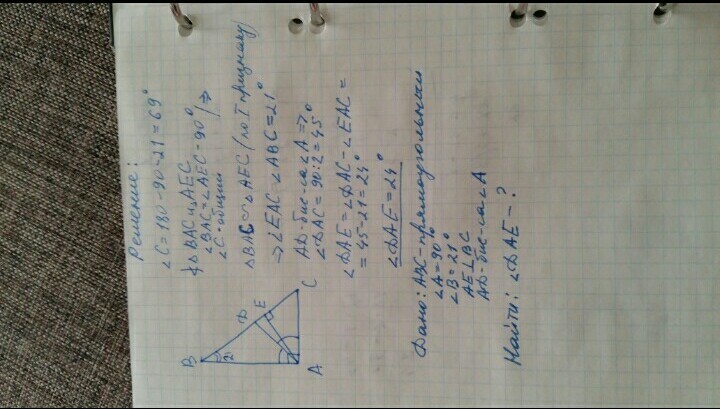 Решение:
∠C = 180-90-21 = 69°
∆ BAC и ∆ AEC
∠BAC = ∠AEC = 90°
∠C - общий | ⇒
∆BAC ∾ ∆AEC (по I признаку)
⇒ ∠EAC = ∠ABC = 21°
AD - бис-са ∠A ⇒
∠DAC = 90:2 = 45°
∠DAE = ∠DAC - ∠EAC =
= 45-21 = 24°
∠DAE = 24°
B
21
D
E
C
A
Дано: ABC - прямоугольный
∠A = 90°
∠B = 21°
AE ⊥ BC
AD - бис-са ∠A
Найти: ∠DAE - ?